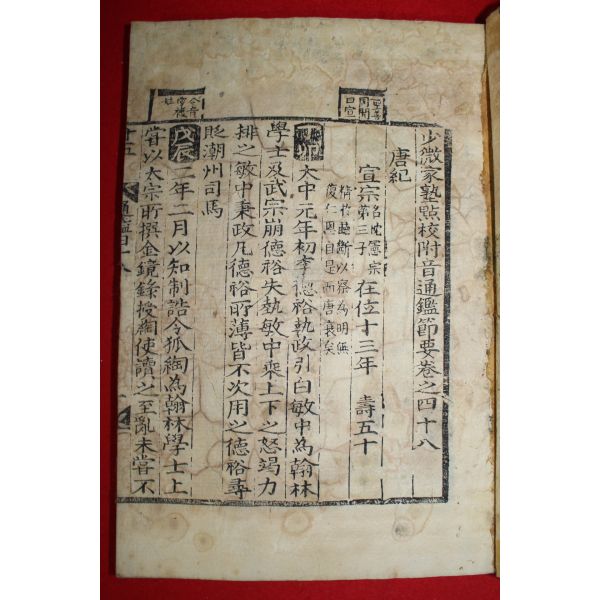 少微家塾點校附音通鑑節要卷之四十八
唐紀
宣宗
名忱憲宗
第三子
在位十三年 壽五十
斷以察為明無
復仁恩自是而唐衰矣
大中元年初李德裕執政引白敏中為翰林
學士及武宗崩德裕失埶敏中乘上下之怒竭力
排之敏中秉政凡德裕所薄皆不次用之德裕尋
貶潮州司馬
戊辰 二年二月以知制誥令狐綯為翰林學士上
嘗以太宗所撰金鏡錄授綯使讀之至亂未嘗不